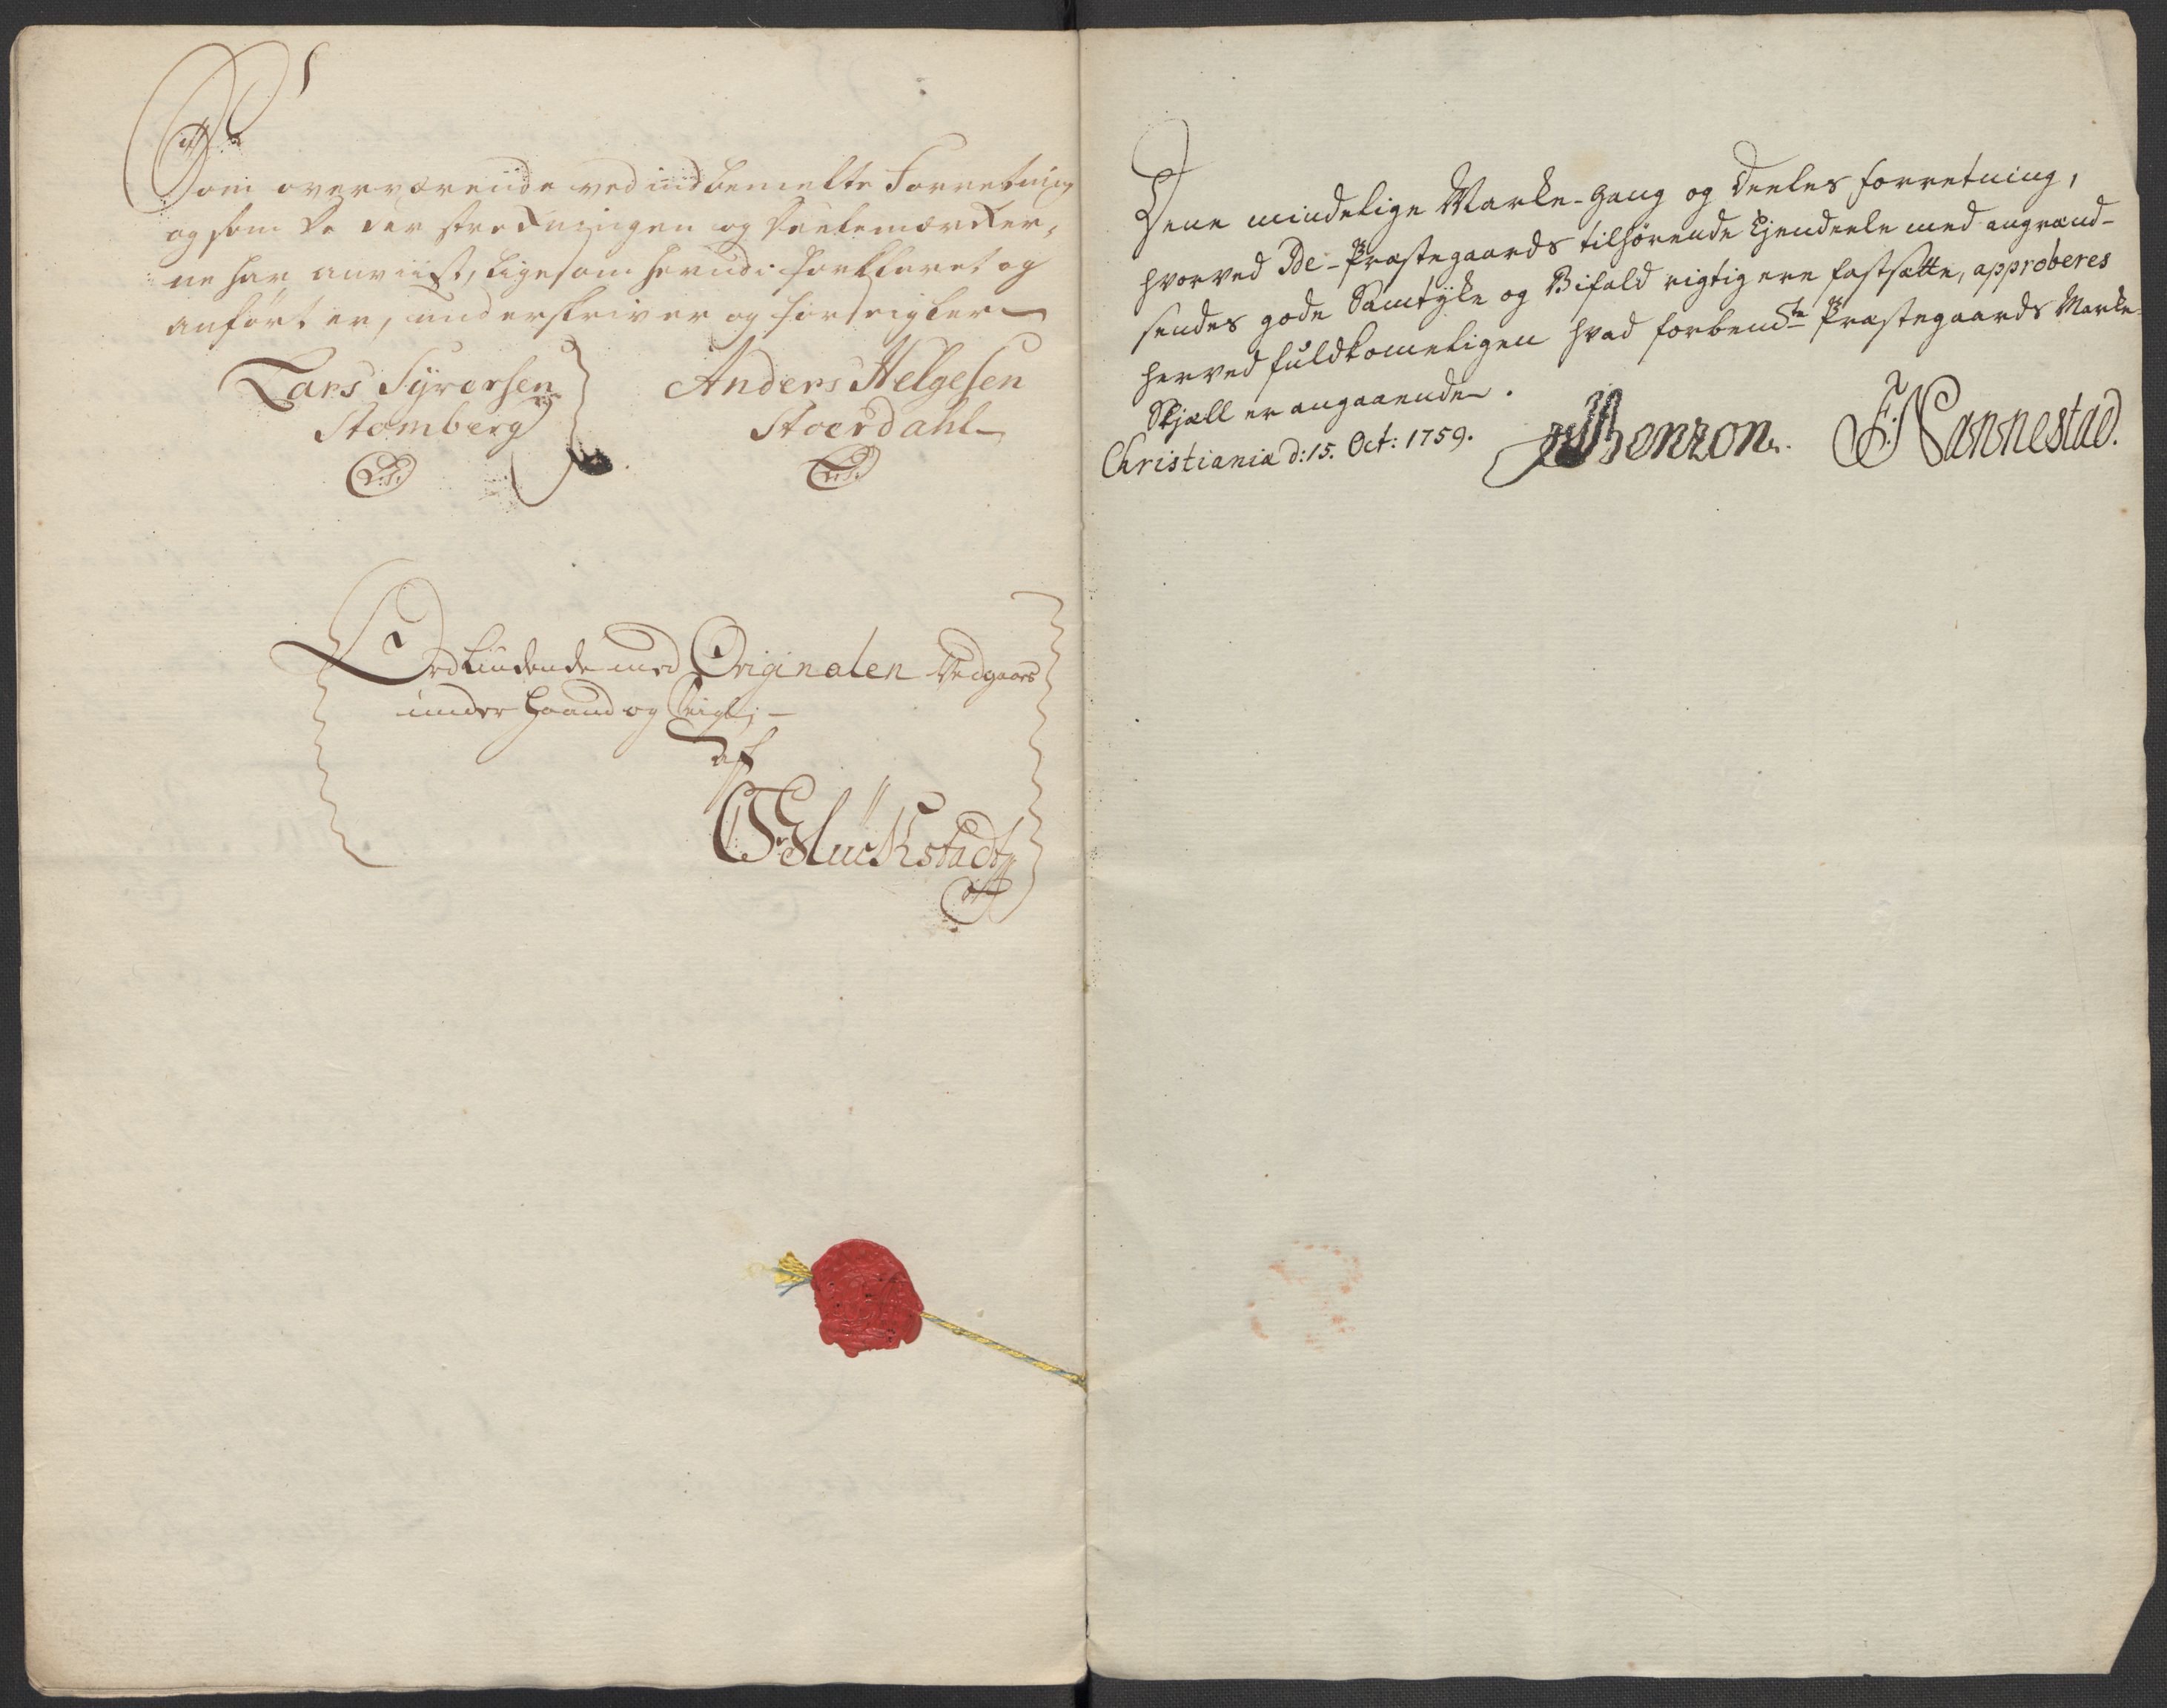 Som overværende ved indbemelte Forretning
og som de der strekningen og Deelemærker-
ne har anviist, ligesom herudi forklaret og
anført er, underskriver og forseigler
Lars Syversen
Stomberg
L.S.
Anders Helgesen
Stoerdahl
L.S.
Ordlÿdende med Originalen Vedgaaes
under Haand og Seigl;
af
Glückstadt
Dene mindelige Marke-Gang og Deeles forretning,
hvorved De-Præstegaards tilhørende Ejendeele med angrænd-
sendes gode Samtÿke og Bifald rigtig ere fastsatte, approberes
herved fuldkomeligen hvad forbemte Præstegaards Marke-
Skjæll er angaaende.
Christiania d: 15. Oct: 1759.
Benzon.
F: Nannestad.